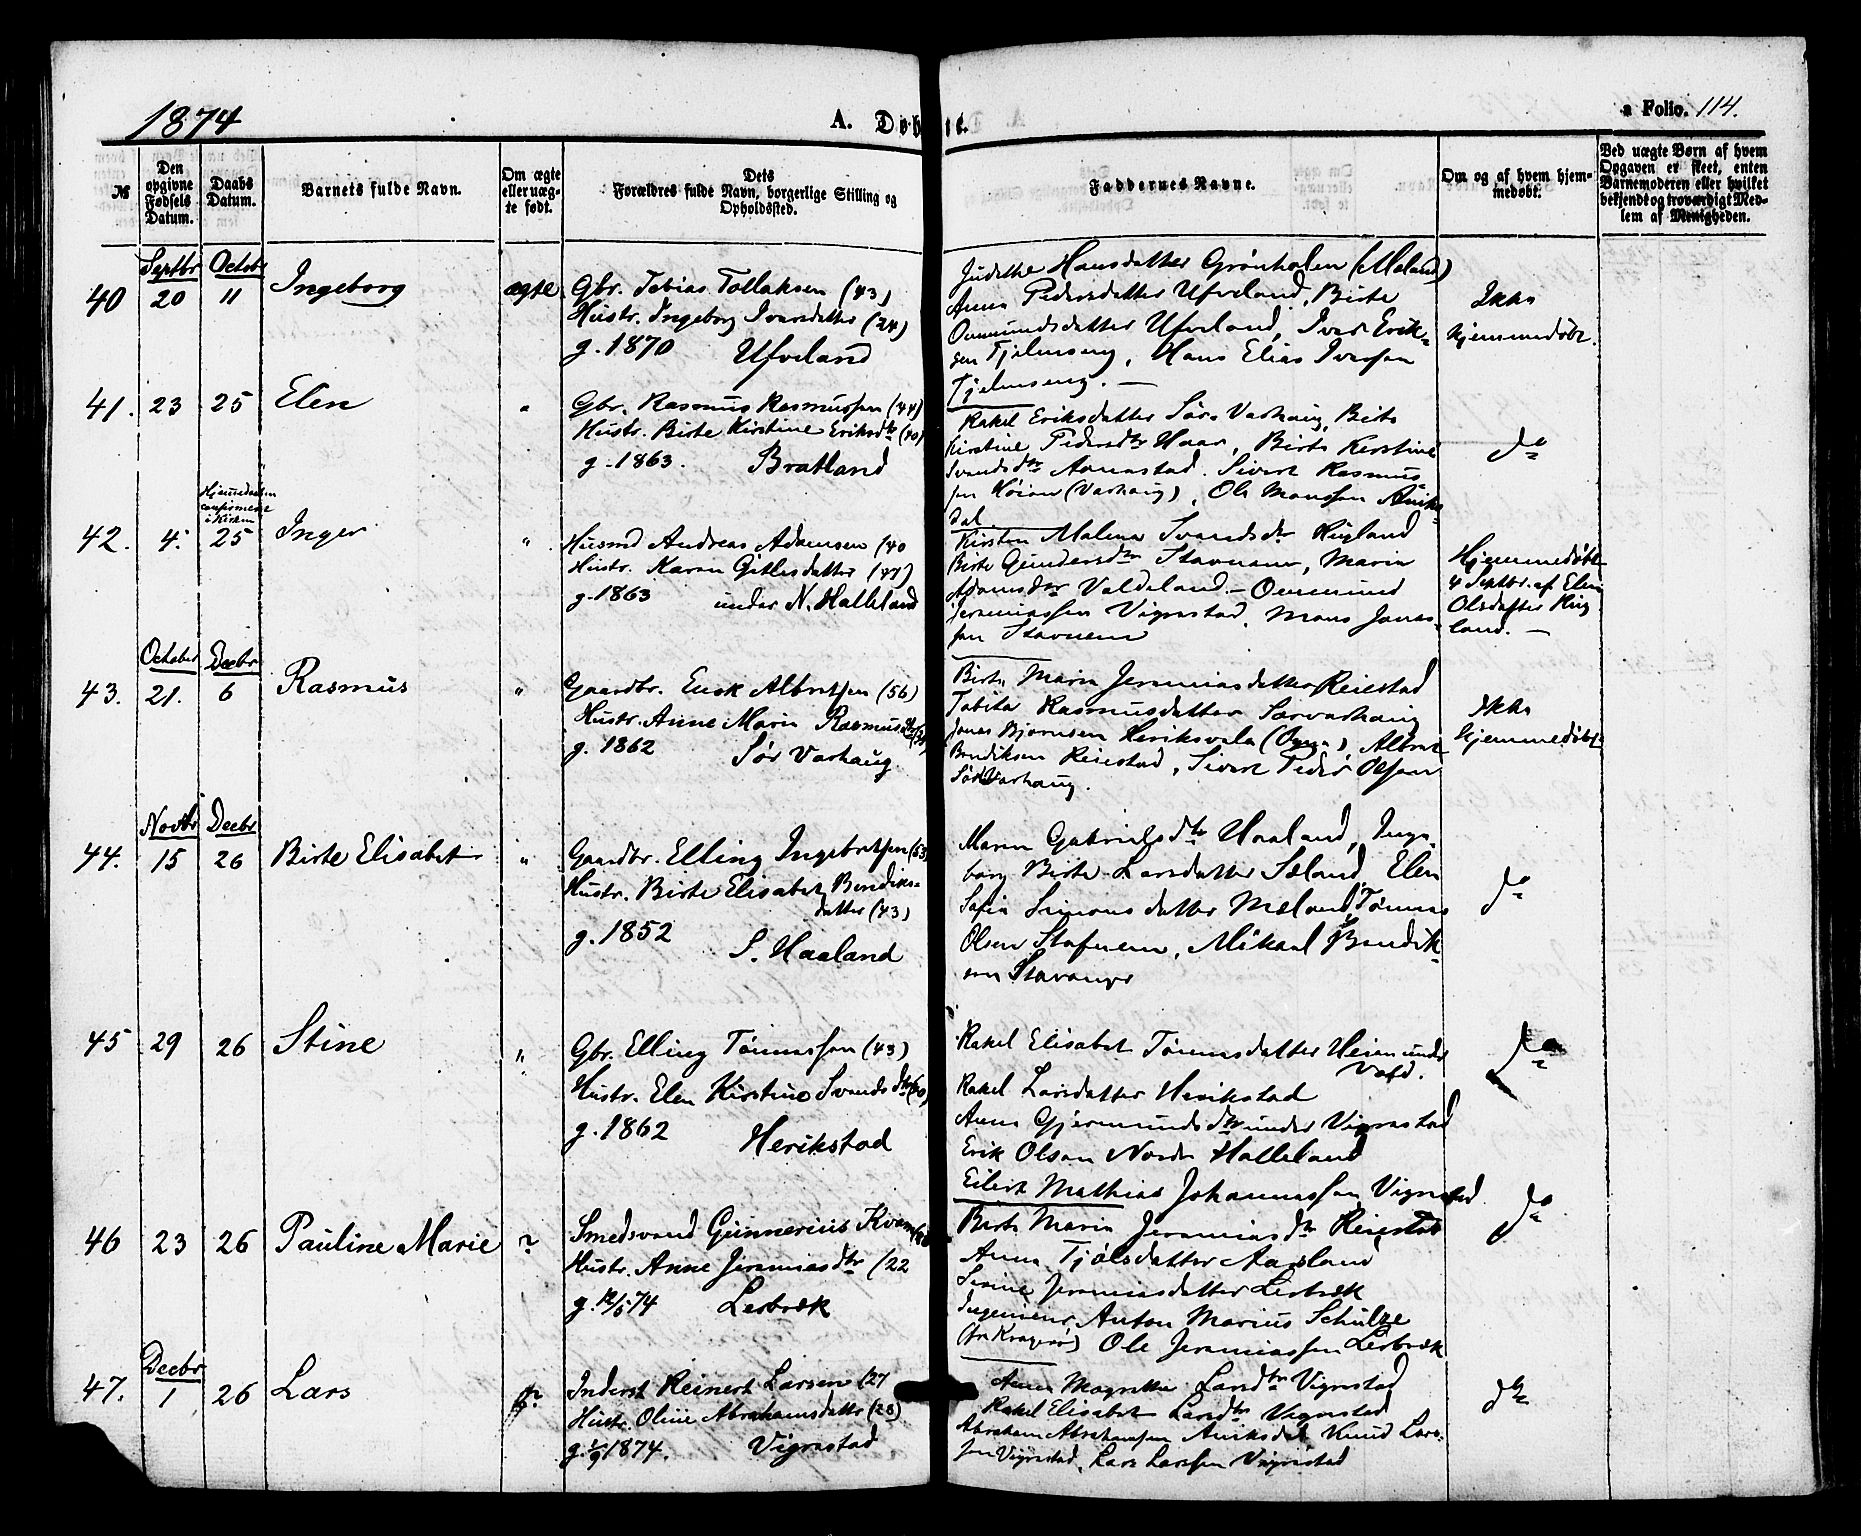 1874
A. Døb t.
a Folio. 114.
№
Den opgivne Fødsels Datum.
Daabs Datum.
Barnets fulde Navn.
Om ægte eller uæg- te født.
Dets Forældres fulde Navn, borgerlige Stilling og Opholdssted.
Faddernes Navne.
Om og af hvem hjem- medøbt.
Ved uægte Børn af hvem Opgaven er skeet, enten Barnemoderen eller hvilket bekjendt og troværdigt Med- lem af Menigheden.
Septbr Octob
40 20 11 Ingeborg ægte
Gbr. Tobias Tollaksen (43)
Hustr. Ingeborg Ivarsdatter (24)
g. 1870 Ufveland
Judithe Hansdatter Grønholen (Maland)
Anna Pedersdatter Ufveland, Birte
Ommundsdatter Ufveland, Ivar Erik-
sen Tjelmseng, Hans Elias Iversen
Tjelmseng. —
Ikke
hjemmedøbt.
41. 23 25 Elen "
Gbr. Rasmus Rasmussen (44)
Hustr. Birte Kirstine Eriksdtr (40)
g. 1863. Bratland
Rakel Eriksdatter Sør Varhaug, Birte
Kirstine Pedersdtr Haar, Birte Kerstine
Svendsdtr Aanestad. Sivert Rasmus-
sen Høien (Varhaug), Ole Monssen Aniks-
dal
do
Hjemmedaaben
confirmeret
i Kirken
42. 4. 25 Inger "
Husmd Andreas Adamsen (40
Hustr. Karen Gitlesdatter (47)
g. 1863 under N. Halleland
Kirsten Malena Svendsdr Hugland
Birte Gundersdtr Stavnem, Maria
Adamsdtr Valdeland. - Ommund
Jeremiassen Vigrestad, Mons Jonas-
sen Stavnem
Hjemmedøbt
4 Septbr. af Elen
Olsdatter Hug
land. —
October Decbr
43. 21. 6 Rasmus "
Gaardbr. Erik Albretsen (56)
Hustr. Anne Maria Rasmusdtr
g. 1862 Sør Varhaug
Birte Maria Jeremiasdatter Reiestad
Tabita Rasmusdatter Sørvarhaug
Jonas Bjørnsen Heriksvela (Ogna), Albret
Bendiksen Reiestad, Sivert Peder Olsen
Sør Varhaug.
Ikke
hjemmedøbt
Novbr Decbr
44. 15 26 Birte Elisabet "
Gaardbr. Elling Ingebretsen (53)
Hustr. Birte Elisabet Bendiks-
datter (43)
g. 1852 S. Haaland
Maren Gabrielsdtr Haaland, Inge-
borg Birte Larsdatter Sæland, Elen
Sofia Simonsdatter Mæland, Tønnes
Olsen Stafnem, Mikael Bendik-
sen Stavanger
do
45 29 26 Stine "
Gbr. Elling Tønnessen (43)
Hustr. Elen Kirstine Svendsdtr (40)
g. 1862 Herikstad
Rakel Elisabet Tønnesdatter Heien under
Rakel Larsdatter Herikstad
Anna Gjermundsdtr under Vigrestad
Erik Olsen Nordr Halleland
Eilert Mathias Johannessen Vigrestad
do
46 23 26 Pauline Marie "
Smedsvend Gunnerius Kvam
Hustr. Anne Jeremiasdtr (22
g. 12/5 74 Lerbræk
Birte Maria Jeremiasdtr Reiestad
Anna Tjølsdatter Aarsland
Serine Jeremiasdatter Lerbræk
Ingeniør Anton Marius Schulze
(fr. Kragerø) Ole Jeremiassen Lerbræk
do
Decbr
47. 1 26 Lars
Inderst Reinert Larsen (27
Hustr. Oline Abrahamsdatter (28)
g. 1874. Vigrestad
Anna Magrethe Larsdtr Vigrestad
Rakel Elisabet Larsdtr Vigrestad
Abraham Abrahamsen Aniksdal Knud Lars-
sen Vigrestad, Lars Larssen Vigrestad
do